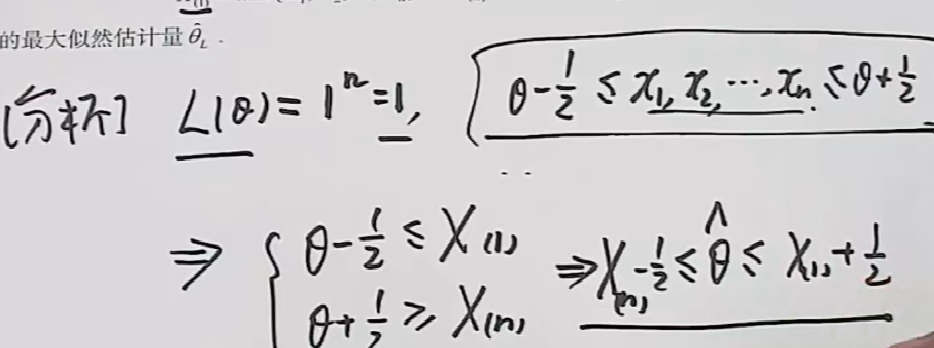 的最大似然估计量 θ̂_L .
[分析] L(θ) = 1ⁿ = 1, θ - 1/2 ≤ x₁, x₂, ⋯, xₙ ≤ θ + 1/2
⇒ { θ - 1/2 ≤ X₍₁₎ ⇒ X₍ₙ₎ - 1/2 ≤ θ̂ ≤ X₍₁₎ + 1/2
θ + 1/2 ≥ X₍ₙ₎